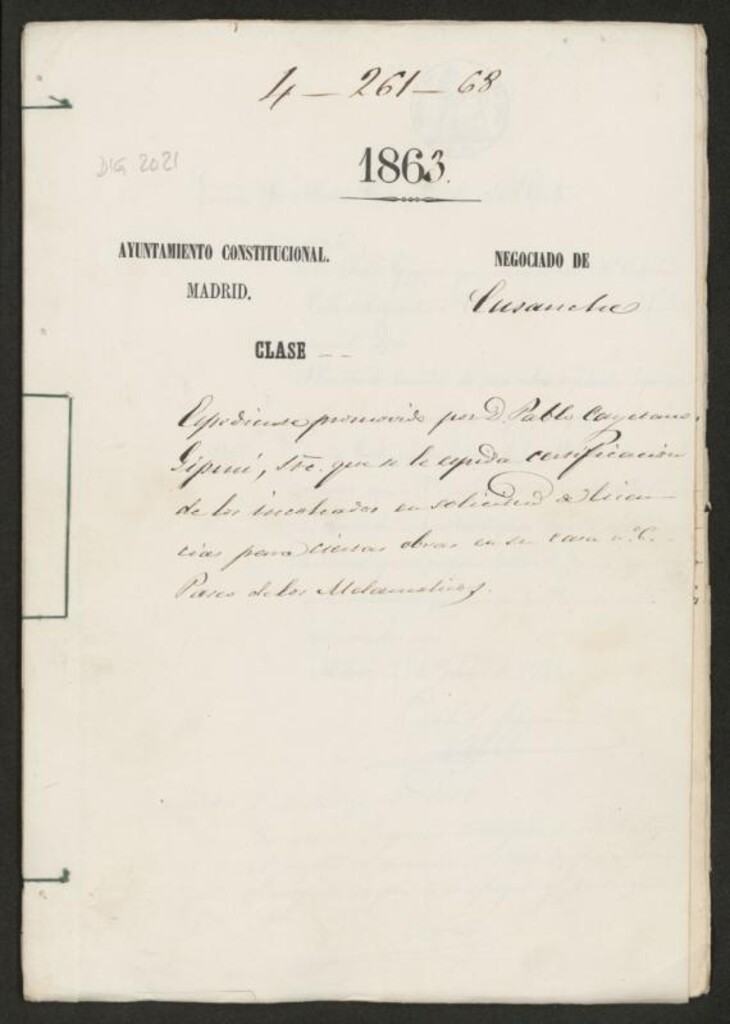 4 — 261 — 68
DIG 2021
1863.
AYUNTAMIENTO CONSTITUCIONAL.
MADRID.
NEGOCIADO DE
Ensanche
CLASE
Espediente promovido por D. Pablo Cayetano
Gipini, que se le espida certificacion
de los incohados en solicitud de licen-
cias para ciertas obras en su casa n.º 6.
Paseo de los Melancolicos.